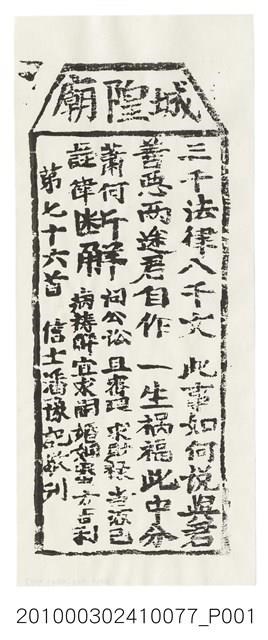 城隍廟
三千法律八千文　此事如何說與君
善惡兩途君自作　一生禍福此中分
蕭何註律
斷解
問公訟且審理　求財祿當添已
病禱解宜求嗣　婚姻 方吉利
第七十六首　信士潘 記敬刊
201000302410077_P001